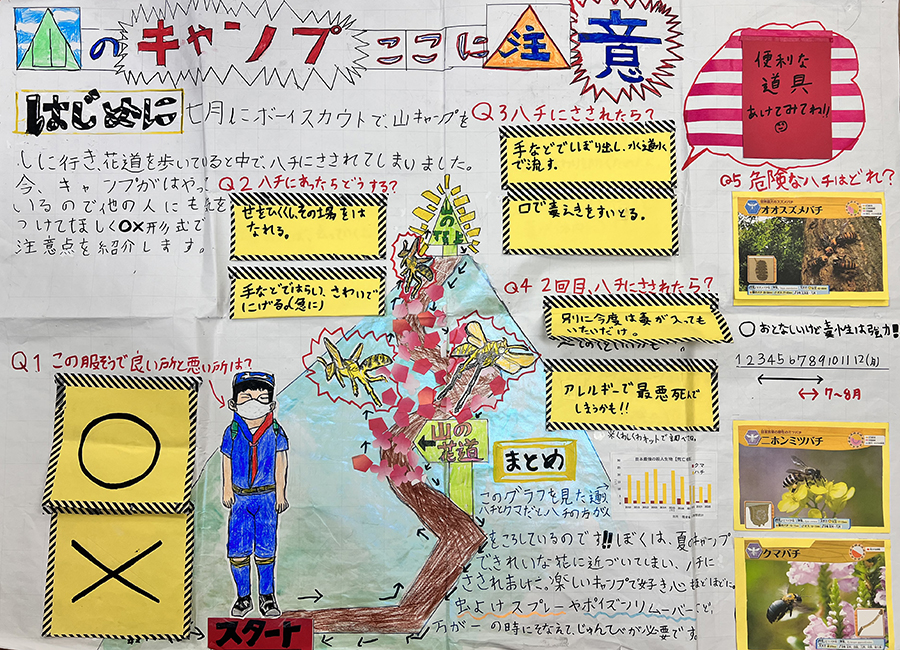 山のキャンプここに注意
はじめに
七月にボーイスカウトで、山キャンプを
しに行き、花道を歩いていると中で、ハチにさされてしまいました。
今、キャンプがはやっ
いるので他の人にも
つけてほしく〇×形式で
注意点を紹介します。
Q1 この服そうで良い所と悪い所は?
〇
×
Q2 ハチにあったらどうする?
せをひくくしその場をは
なれる。
手などではらし、さわいで
にげる(急に)
Q3 ハチにさされたら?
手などでしぼり出し、水道水
で流す。
口で毒えきをすいとる。
Q4 2回目、ハチにさされたら?
別に今度は毒が入っても
いたいだけ。
アレルギーで最悪死んで
しまうかも!!
便利な
道具
あけてみてね!!
Q5 危険なハチはどれ?
オオスズメバチ
〇おとなしいけど毒性は強力!!
1 2 3 4 5 6 7 8 9 10 11 12(月)
7〜8月
ニホンミツバチ
クマバチ
山の
頂上
山の
花道
スタート
まとめ
クマ
ハチ
このグラフを見た通り
ハチとクマだとハチの方が人
をころしているのです!!ぼくは、夏キャンプ
できれいな花に近づいてしまい、ハチに
さされまけた。楽しいキャンプで好き心ほどほどに。
虫よけスプレーやポイズンリムーバーなど、
万が一の時にそなえて、じゅんびが必要です。